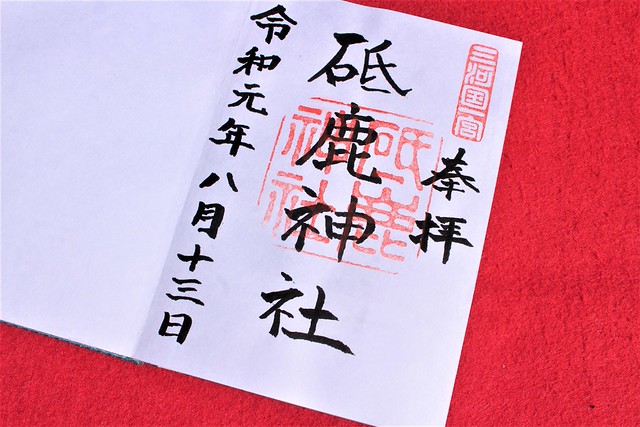 三河国一宮
奉拝
砥鹿神社
砥鹿神社
令和元年八月十三日